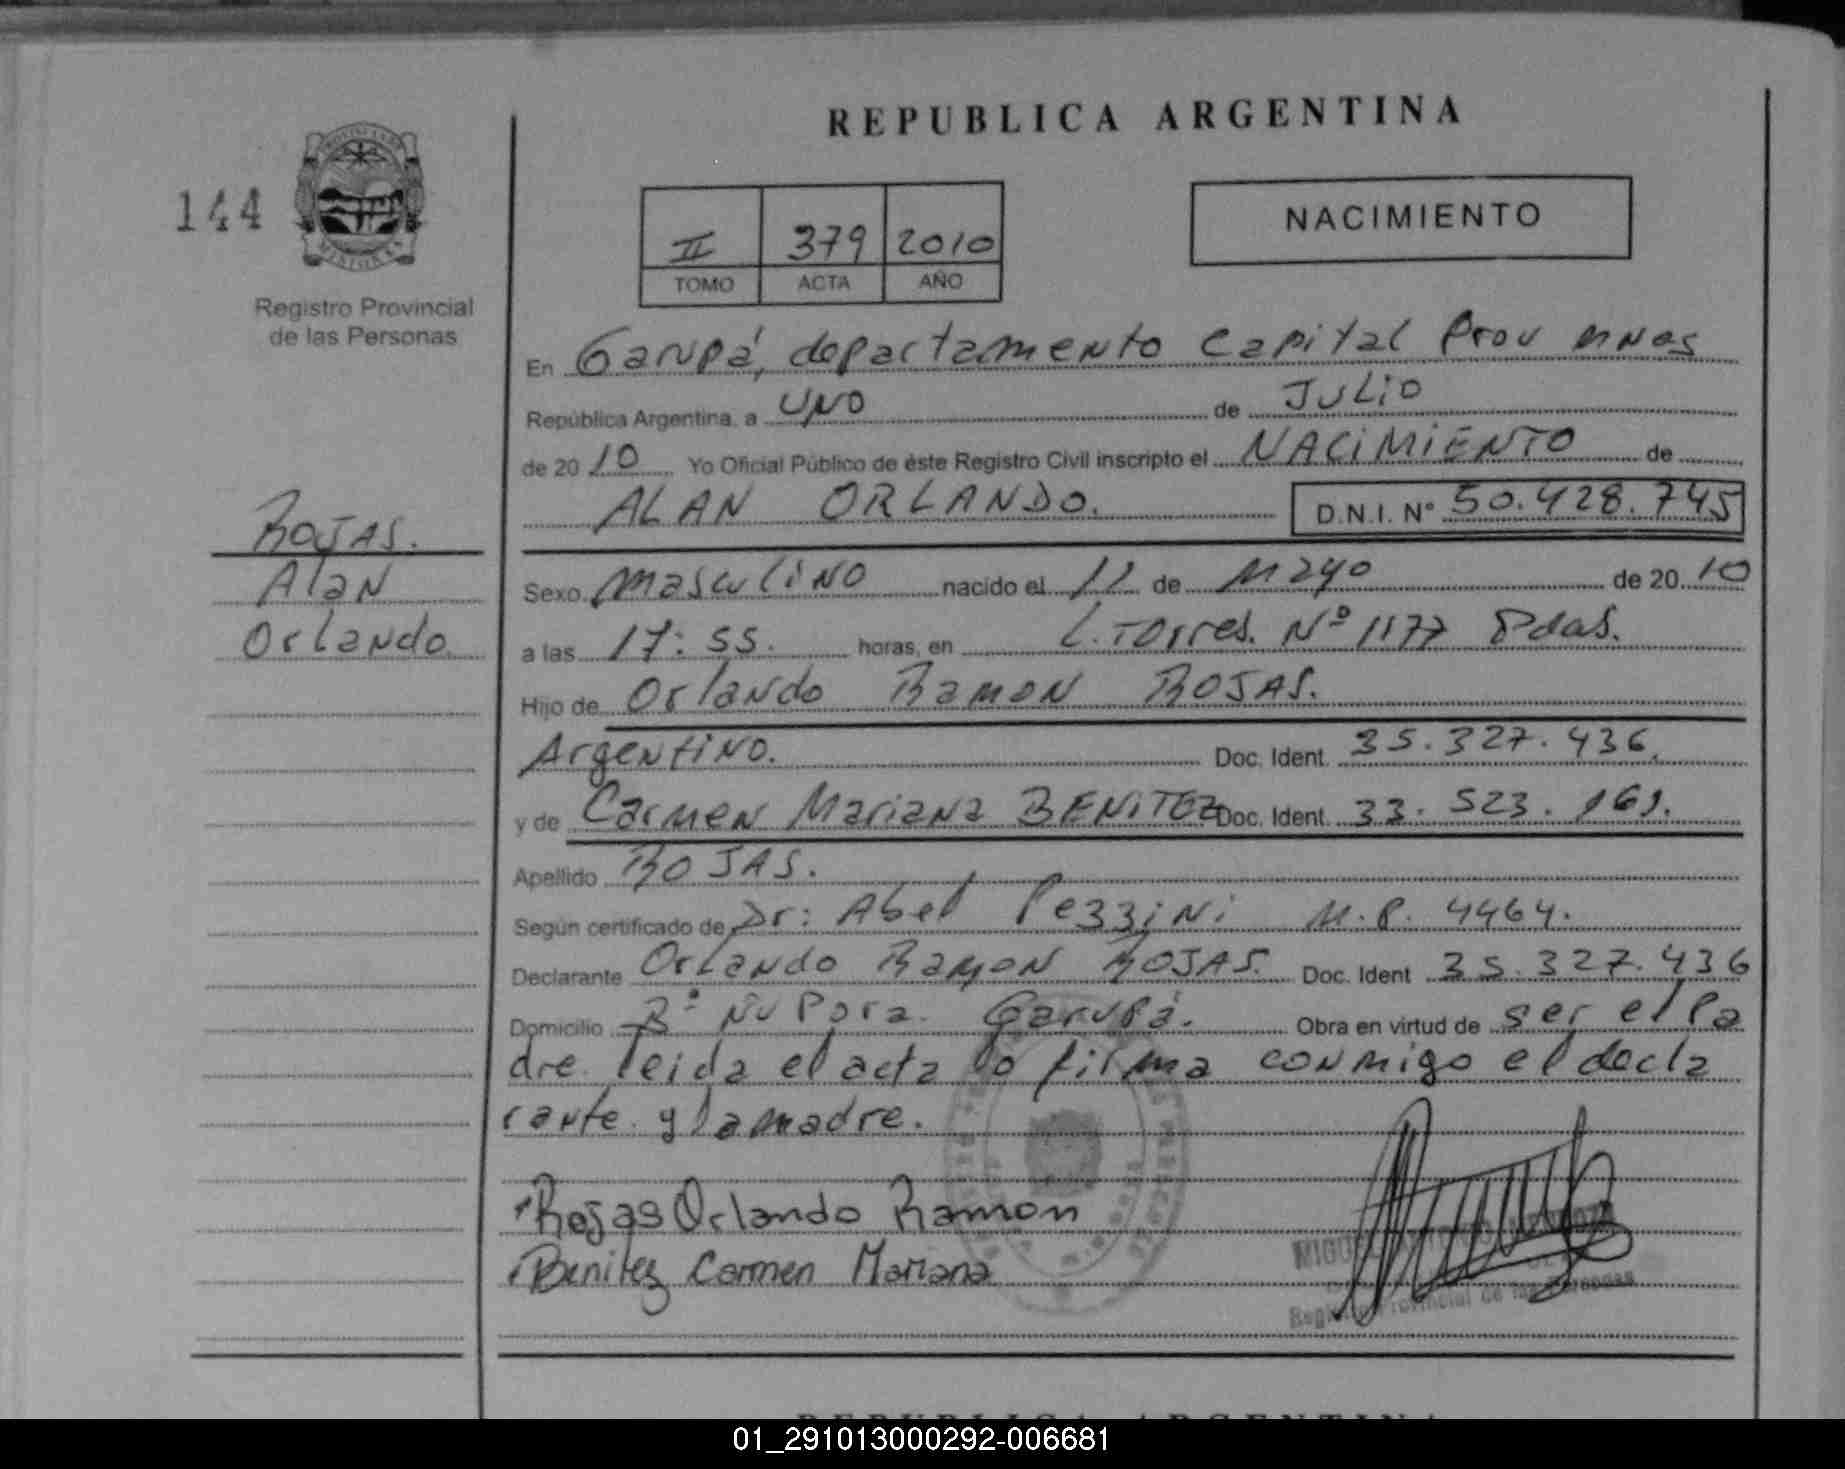 REPUBLICA ARGENTINA
144
PROVINCIA DE
MISIONES
Registro Provincial
de las Personas
II 379 2010
TOMO ACTA AÑO
NACIMIENTO
En Garupá, departamento Capital Prov mnes
República Argentina, a UNO de JULIO
de 2010 Yo Oficial Público de éste Registro Civil inscripto el NACIMIENTO de
ALAN ORLANDO. D.N.I. Nº 50.428.745
ROJAS.
Alan
Orlando
Sexo masculino nacido el 11 de Mayo de 2010
a las 17:55. horas, en L. Torres. Nº 1177 Pdas.
Hijo de Orlando Ramon ROJAS.
Argentino. Doc. Ident. 35.327.436.
y de Carmen Mariana BENITEZ Doc. Ident. 33.523.161.
Apellido ROJAS.
Según certificado de Dr: Abel Pezzini M.P. 4464.
Declarante Orlando Ramon ROJAS. Doc. Ident 35.327.436
Domicilio Bº Ñu Pora. Garupá. Obra en virtud de ser el Pa
dre. leida el acta lo firma conmigo el decla
rante y la madre.
Rojas Orlando Ramon
Benitez Carmen Mariana
MIGUEL ANTONIO MENDOZA
Registro Provincial de las Personas
REPUBLICA ARGENTINA
01_291013000292-006681